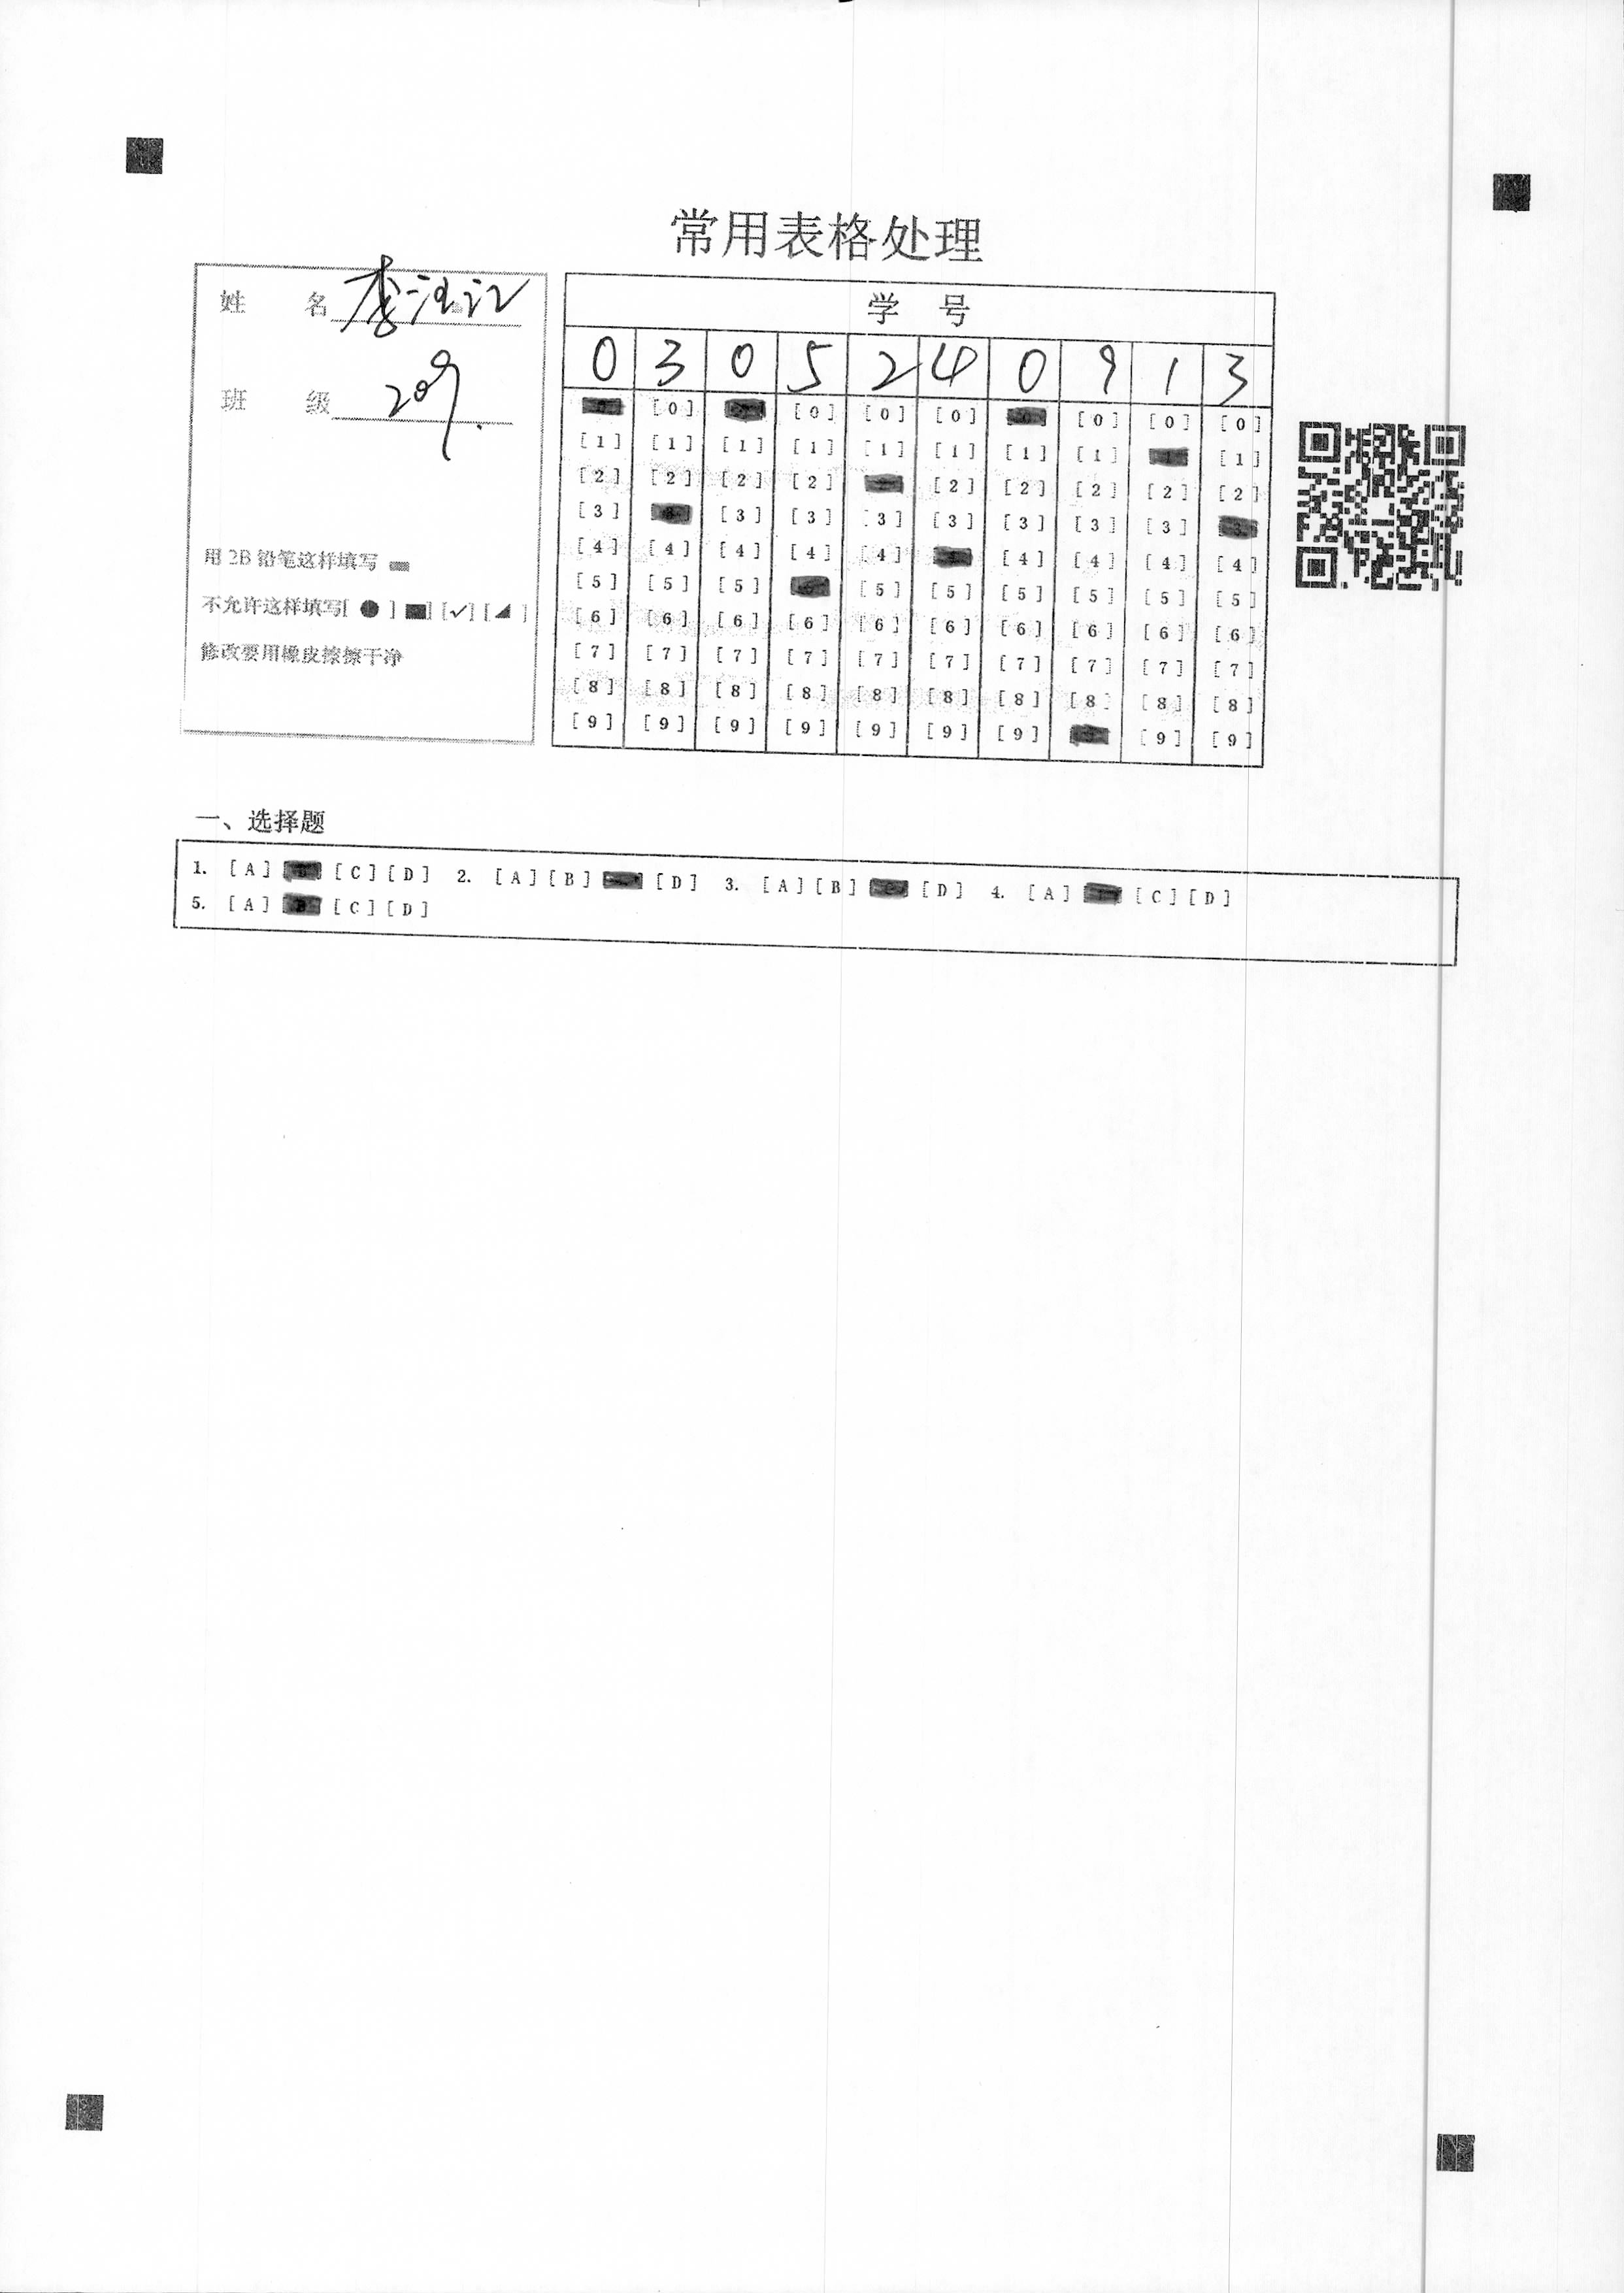 常用表格处理
姓 名 李
班 级 209.
用 2B 铅笔这样填写
不允许这样填写[ ● ] [■] [✓] [◢ ]
修改要用橡皮擦擦干净
学 号
0 3 0 5 2 4 0 9 1 3
[0] [0] [0] [0] [0] [0] [0]
[1] [1] [1] [1] [1] [1] [1] [1] [1]
[2] [2] [2] [2] [2] [2] [2] [2] [2]
[3] [3] [3] [3] [3] [3] [3] [3]
[4] [4] [4] [4] [4] [4] [4] [4] [4]
[5] [5] [5] [5] [5] [5] [5] [5] [5]
[6] [6] [6] [6] [6] [6] [6] [6] [6] [6]
[7] [7] [7] [7] [7] [7] [7] [7] [7] [7]
[8] [8] [8] [8] [8] [8] [8] [8] [8] [8]
[9] [9] [9] [9] [9] [9] [9] [9] [9]
一、选择题
1. [A] [C] [D] 2. [A] [B] [D] 3. [A] [B] [D] 4. [A] [C] [D]
5. [A] [C] [D]